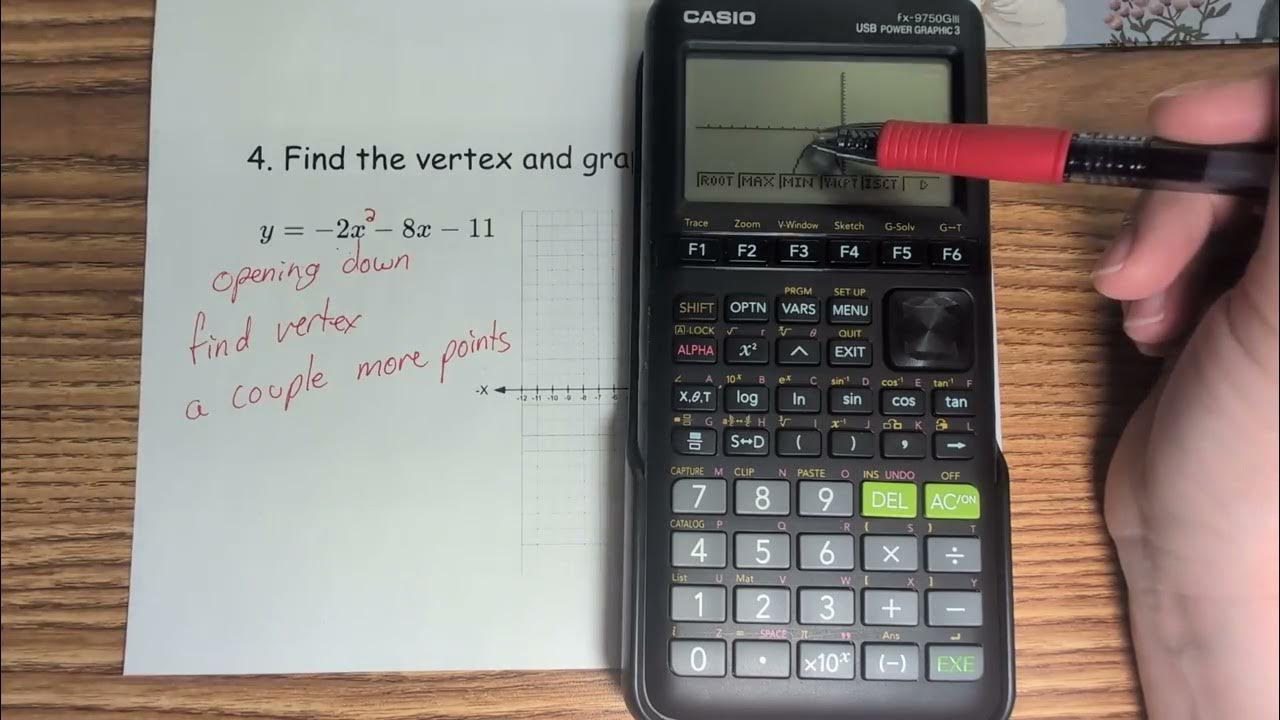 CASIO
fx-9750GIII
USB POWER GRAPHIC 3
4. Find the vertex and gra
y = −2x² − 8x − 11
opening down
find vertex
a couple more points
-X
-12 -11 -10 -9 -8 -7 -6
ROOT MAX MIN Y-ICPT ISCT ▷
Trace Zoom V-Window Sketch G-Solv G↔T
F1 F2 F3 F4 F5 F6
PRGM SET UP
SHIFT OPTN VARS MENU
A-LOCK √ r ∛ θ QUIT
ALPHA x² ^ EXIT
∠ A 10ˣ B eˣ C sin⁻¹ D cos⁻¹ E tan⁻¹ F
X,θ,T log ln sin cos tan
G H ∛ I x⁻¹ J K L
S↔D ( ) , →
CAPTURE M CLIP N PASTE O INS UNDO OFF
7 8 9 DEL AC/ON
CATALOG P Q R { S } T
4 5 6 × ÷
List U Mat V W [ X ] Y
1 2 3 + −
i Z = SPACE π " Ans
0 . ×10ˣ (−) EXE